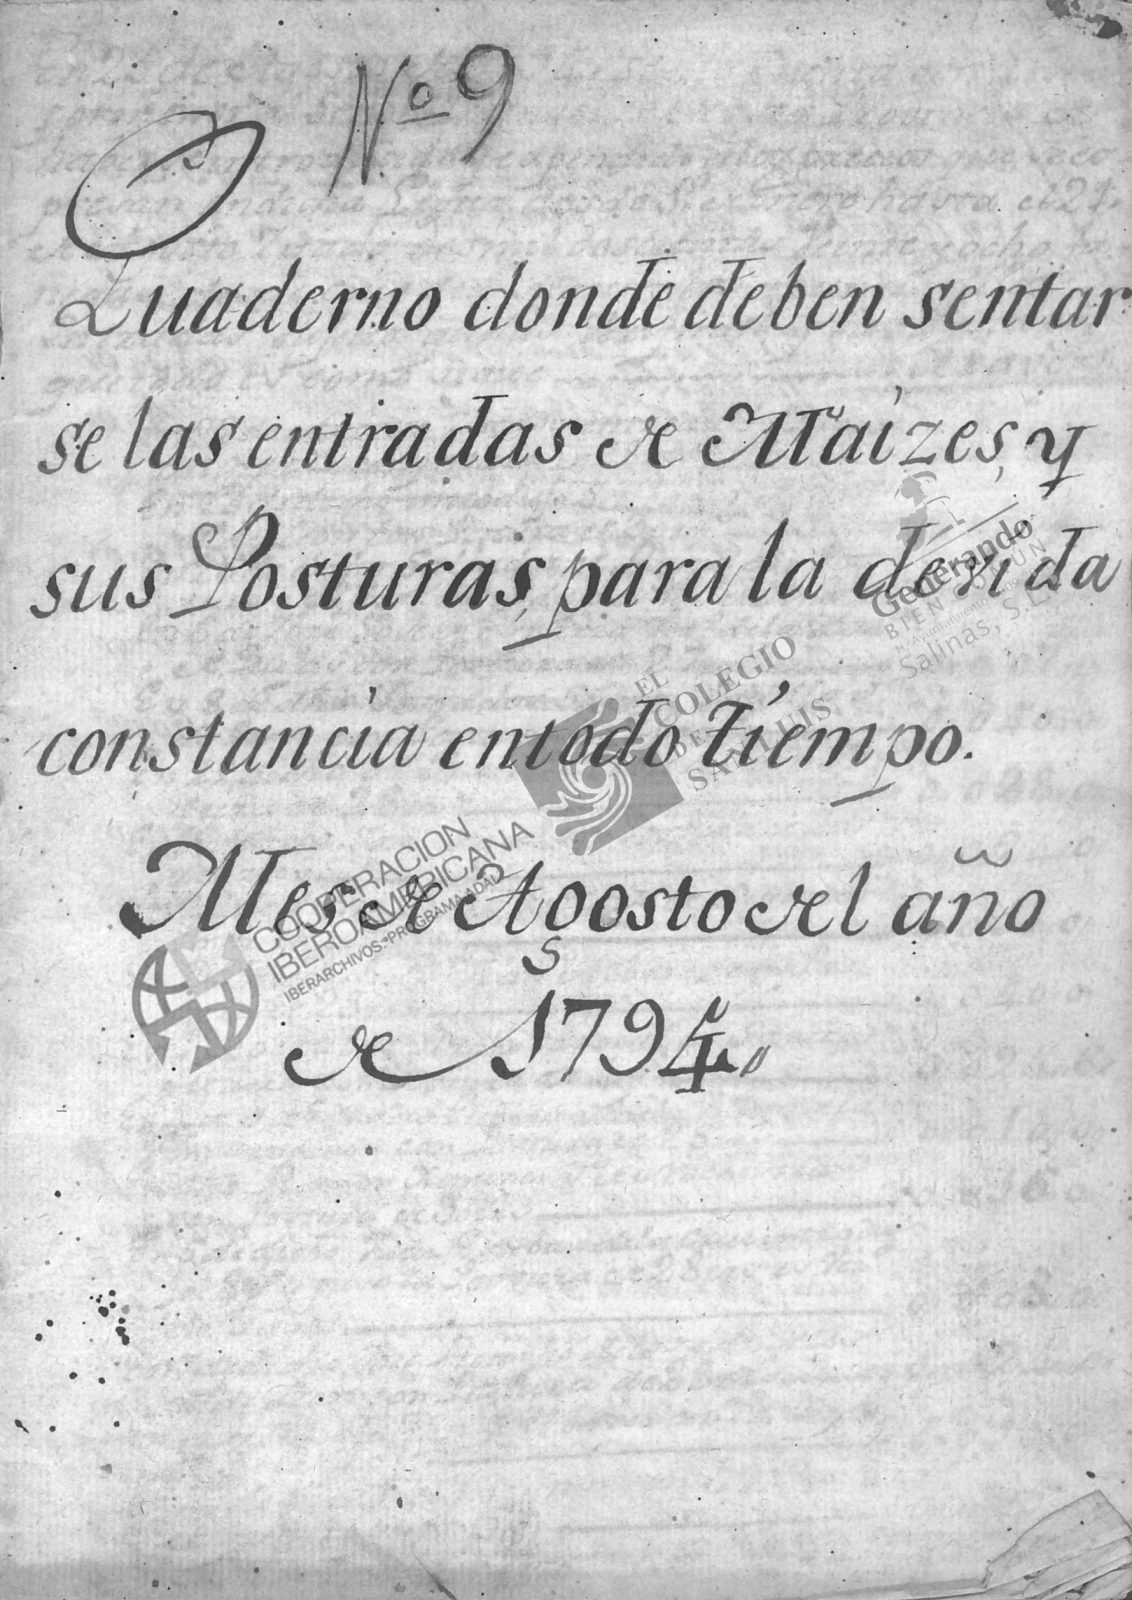 Nº 9
Quaderno donde deben sentar
se las entradas de Maízes, y
sus Posturas, para la devida
constancia en todo tiempo.
Mes de Agosto del año
de 1794.
Generando
BIEN COMÚN
Salinas, S.L.P.
EL
COLEGIO
DE
SAN LUIS
COOPERACION
IBEROAMERICANA
IBERARCHIVOS-PROGRAMA ADAI